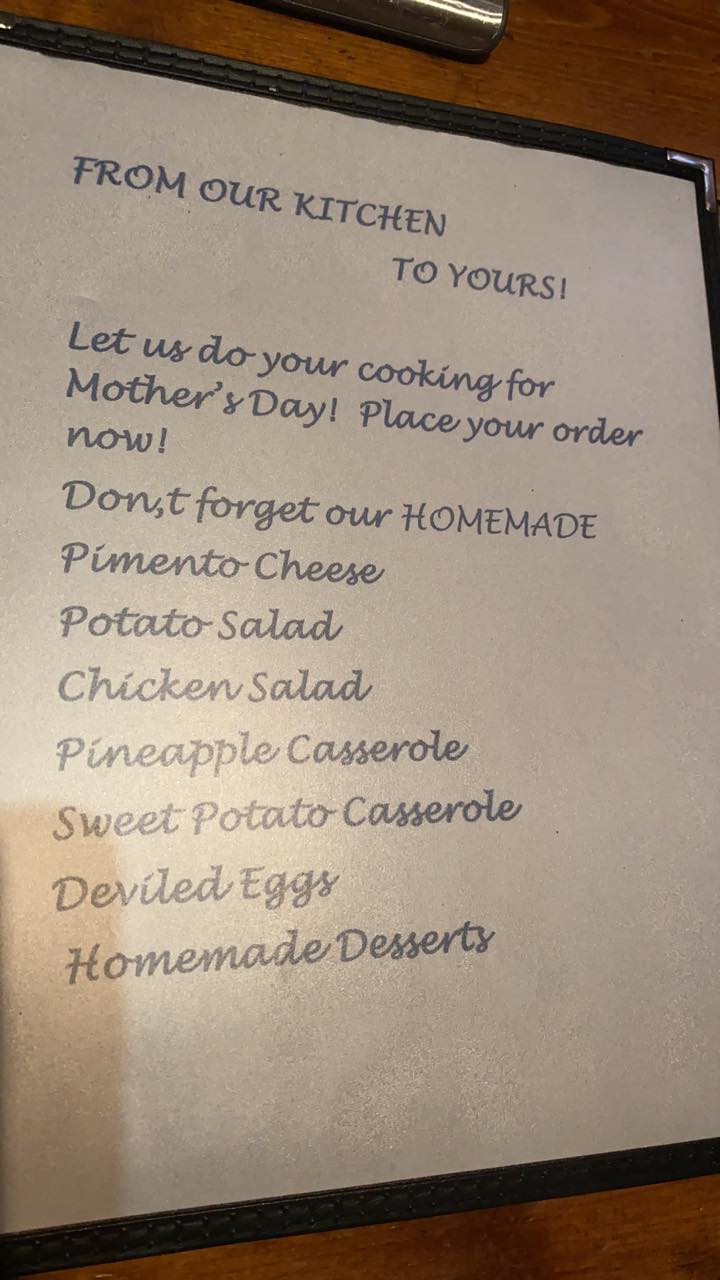 FROM OUR KITCHEN
TO YOURS!
Let us do your cooking for
Mother's Day! Place your order
now!
Don,t forget our HOMEMADE
Pimento Cheese
Potato Salad
Chicken Salad
Pineapple Casserole
Sweet Potato Casserole
Deviled Eggs
Homemade Desserts